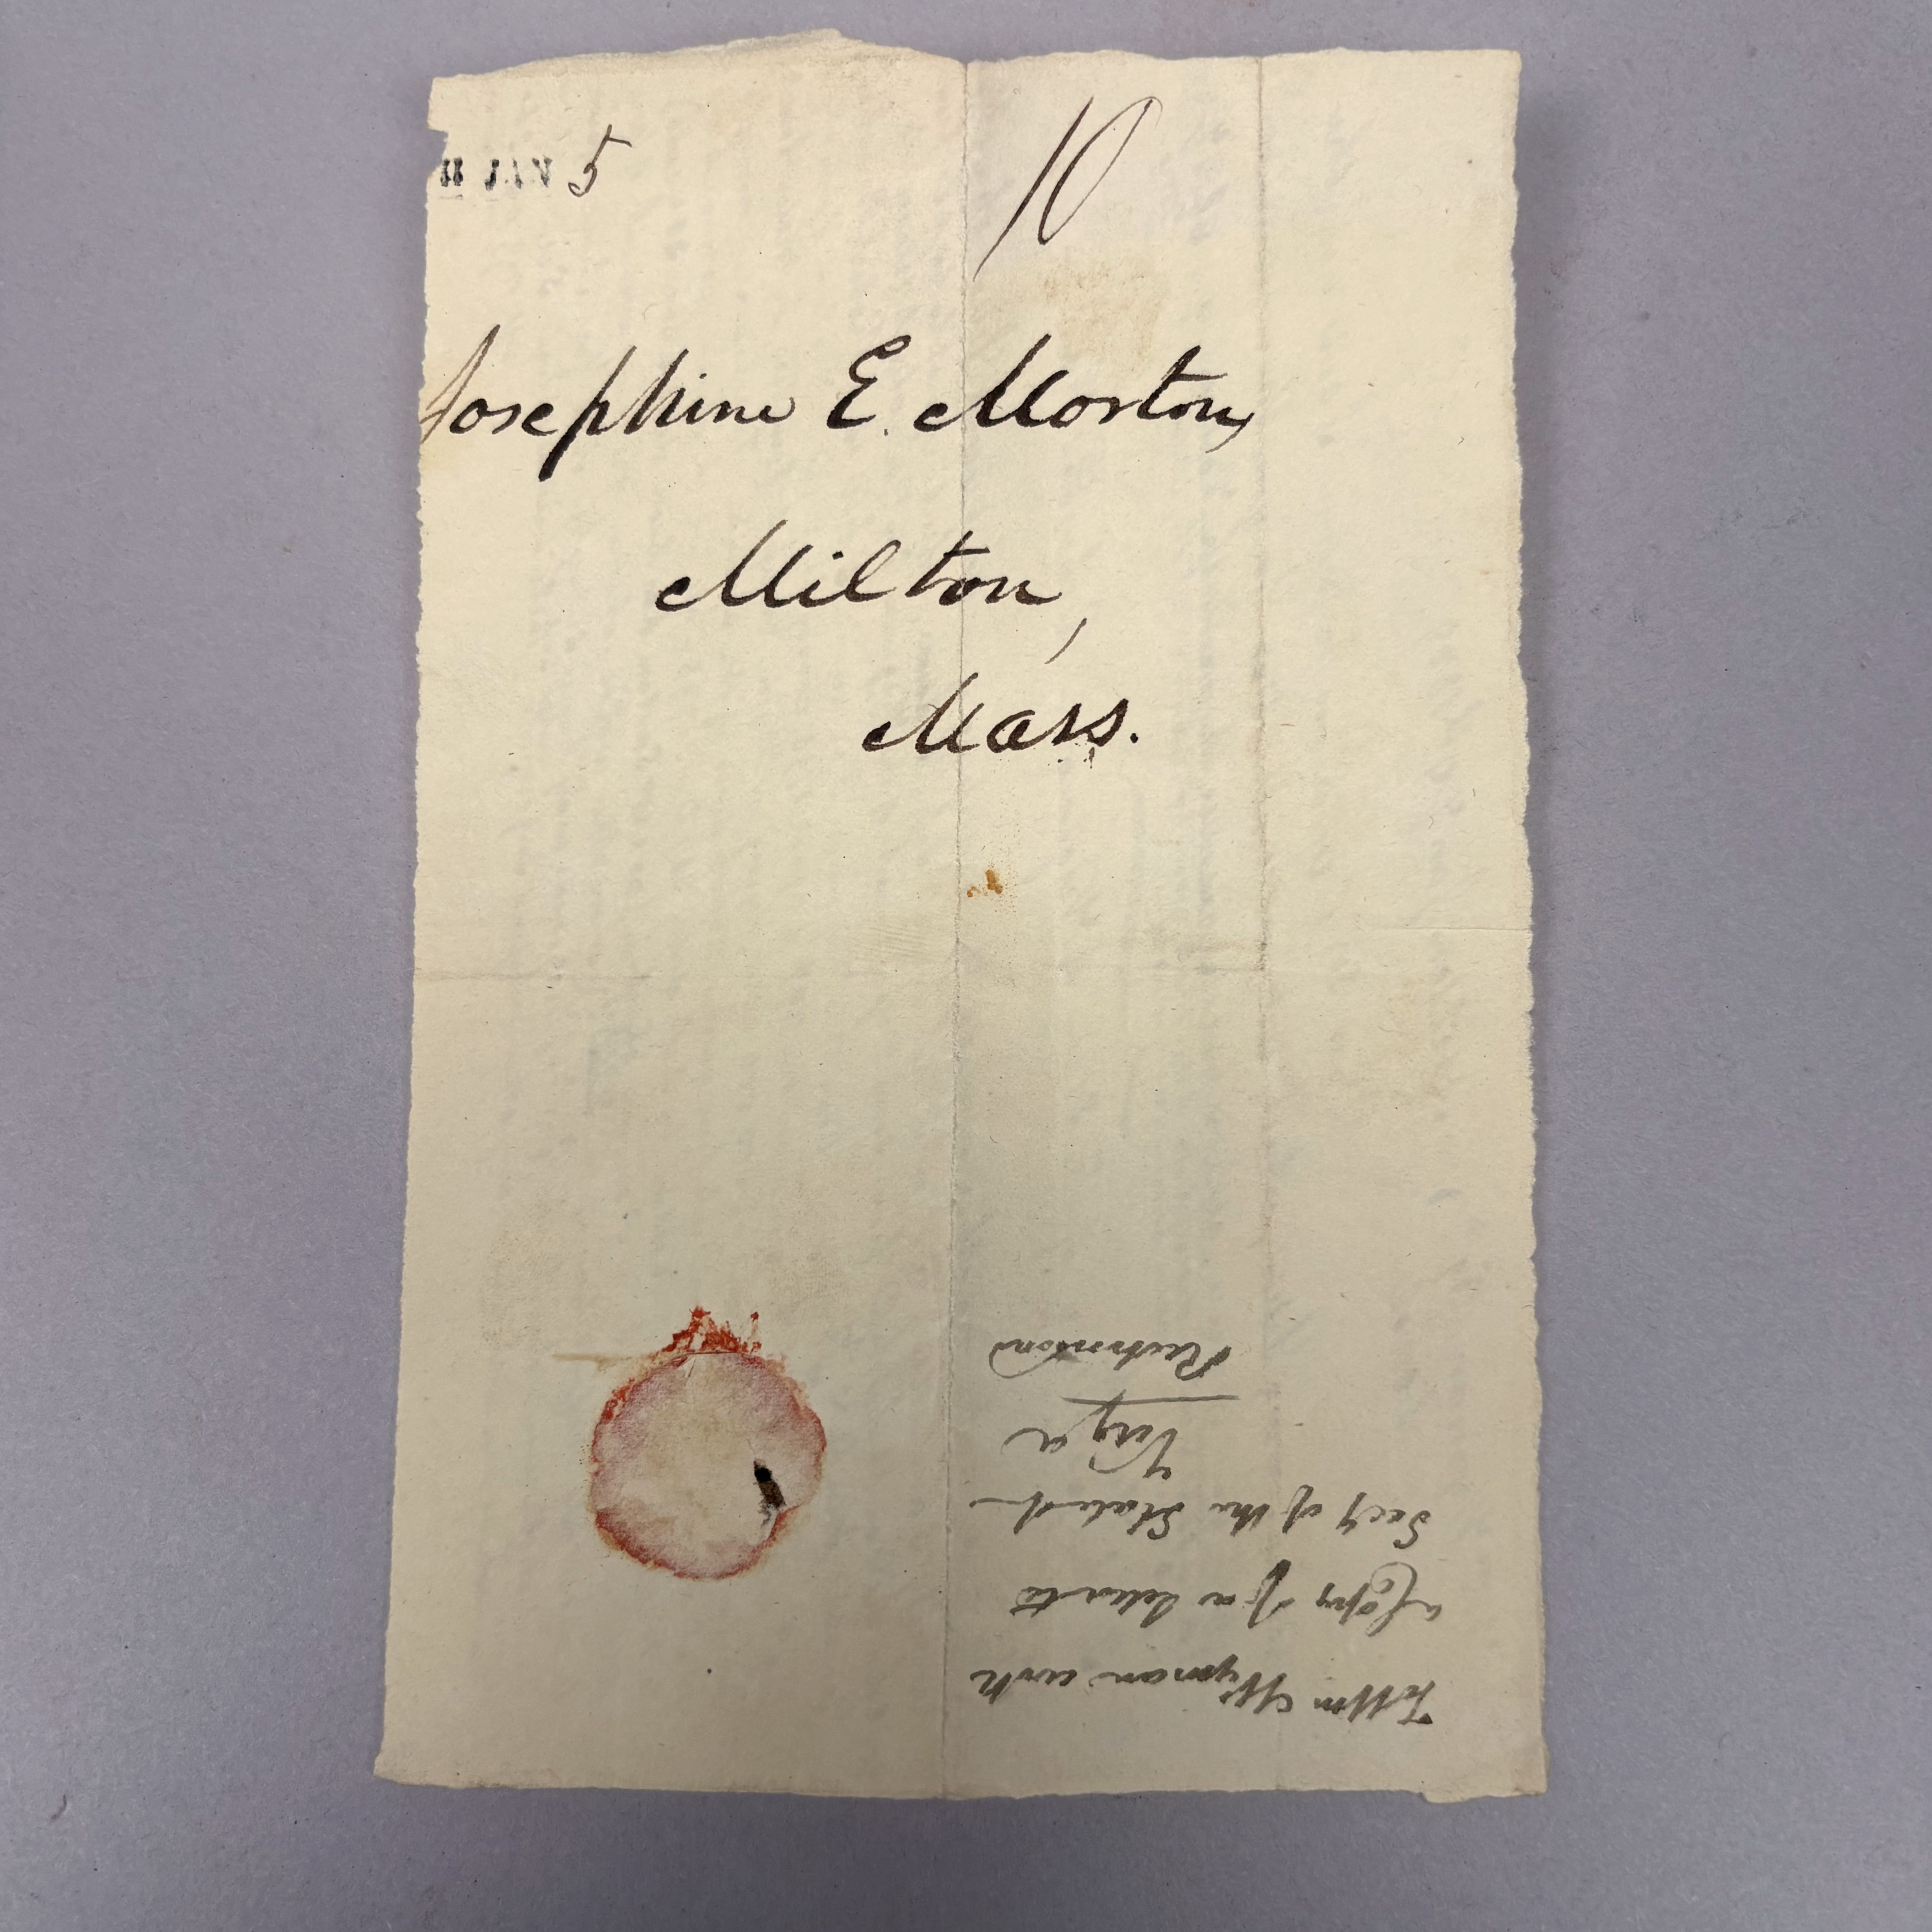 H JAN 5
10
Josephine E. Morton,
Milton,
Mass.
To Wm Wyman with
a Copy of a
Secy of the State of
Virga
Richmond